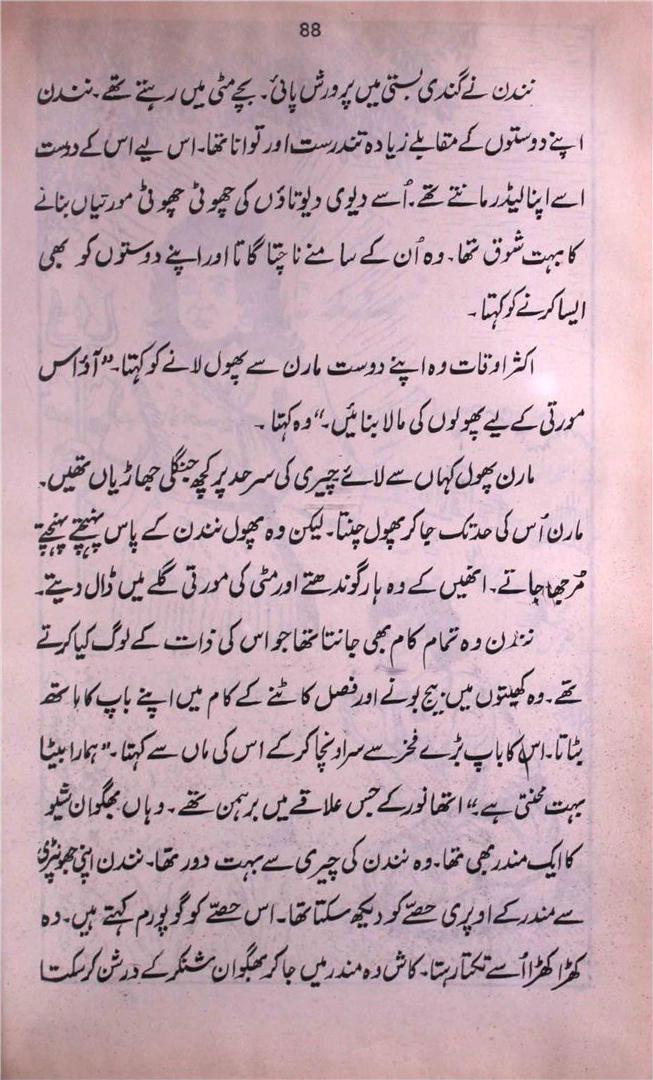 88
نندن نے گندی بستی میں پرورش پائی۔ بچے مٹی میں رہتے تھے۔ نندن
اپنے دوستوں کے مقابلے زیادہ تندرست اور توانا تھا۔ اس لیے اس کے دوست
اسے اپنا لیڈر مانتے تھے۔ اُسے دیوی دیوتاؤں کی چھوٹی چھوٹی مورتیاں بنانے
کا بہت شوق تھا۔ وہ اُن کے سامنے ناچتا گاتا اور اپنے دوستوں کو بھی
ایسا کرنے کو کہتا۔
اکثر اوقات وہ اپنے دوست مارن سے پھول لانے کو کہتا۔ "آؤ اس
مورتی کے لیے پھولوں کی مالا بنائیں۔" وہ کہتا۔
مارن پھول کہاں سے لائے چیری کی سرحد پر کچھ جنگلی جھاڑیاں تھیں۔
مارن اُس کی حد تک جا کر پھول چنتا۔ لیکن وہ پھول نندن کے پاس پہنچتے پہنچتے
مُرجھا جاتے۔ انھیں کے وہ ہار گوندھتے اور مٹی کی مورتی گلے میں ڈال دیتے۔
نندن وہ تمام کام بھی جانتا تھا جو اس کی ذات کے لوگ کیا کرتے
تھے۔ وہ کھیتوں میں بیج بونے اور فصل کاٹنے کے کام میں اپنے باپ کا ہاتھ
بٹاتا۔ اس کا باپ بڑے فخر سے سر اونچا کر کے اس کی ماں سے کہتا۔ "ہمارا بیٹا
بہت محنتی ہے۔" اتھانور کے جس علاقے میں برہمن تھے۔ وہاں بھگوان شیو
کا ایک مندر بھی تھا۔ وہ نندن کی چیری سے بہت دور تھا۔ نندن اپنی جھونپڑی
سے مندر کے اوپری حصّے کو دیکھ سکتا تھا۔ اس حصّے کو گوپورم کہتے ہیں۔ وہ
کھڑا کھڑا اُسے تکتا رہتا۔ کاش وہ مندر میں جا کر بھگوان شنکر کے درشن کر سکتا